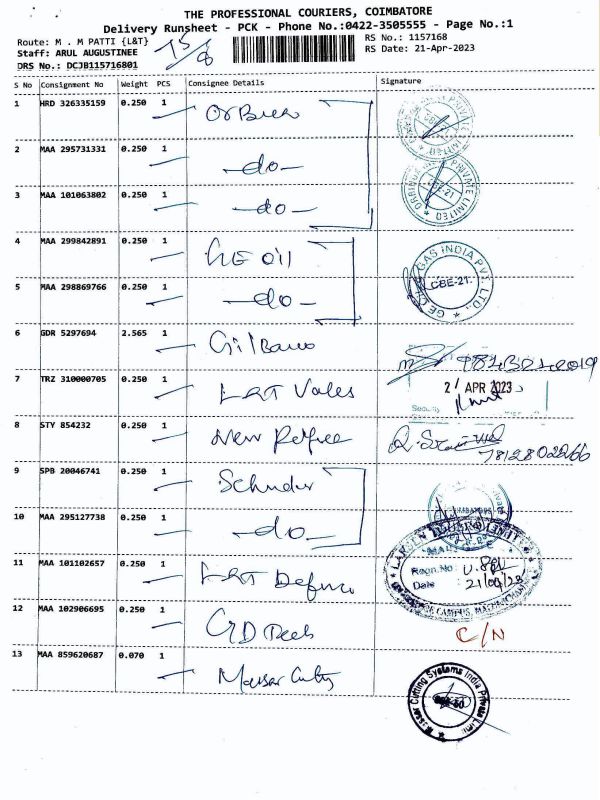 THE PROFESSIONAL COURIERS, COIMBATORE
Delivery Runsheet - PCK - Phone No.:0422-3505555 - Page No.:1
Route: M . M PATTI {L&T}
RS No.: 1157168
Staff: ARUL AUGUSTINEE
RS Date: 21-Apr-2023
DRS No.: DCJB115716801
15/8
S No Consignment No Weight PCS Consignee Details Signature
1 HRD 326335159 0.250 1
2 MAA 295731331 0.250 1 -do-
3 MAA 101063802 0.250 1 -do-
4 MAA 299842891 0.250 1 GE Oil
GE OIL GAS INDIA PVT. LTD.
CBE-21.
5 MAA 298869766 0.250 1 -do-
6 GDR 5297694 2.565 1
7 TRZ 310000705 0.250 1 L&T Valves
21 APR 2023
Security
8 STY 854232 0.250 1 New
7812802266
9 SPB 20046741 0.250 1
10 MAA 295127738 0.250 1 -do-
LARSEN LIMITED
11 MAA 101102657 0.250 1 L&T Defence
Regn.No:
Date : 21/04/23
CAMPUS,
12 MAA 102906695 0.250 1
C/N
13 MAA 859620687 0.070 1
Cutting Systems India Private